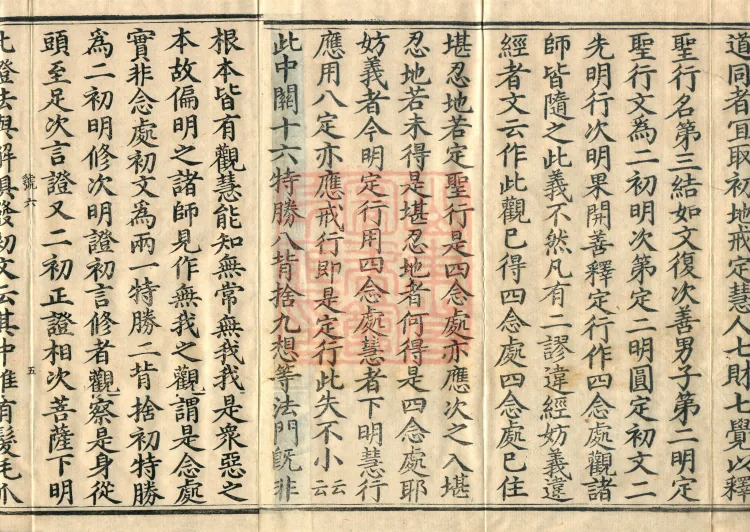 道同者宜取初地戒定慧人七財七覺以釋
聖行名第三結如文復次善男子第二明定
聖行文為二初明次第定二明圓定初文二
先明行次明果開善釋定行作四念處觀諸
師皆隨之此義不然凡有二謬違經妨義違
經者文云作此觀已得四念處四念處已住
堪忍地若定聖行是四念處亦應次之入堪
忍地若未得是堪忍地者何得是四念處耶
妨義者今明定行用四念處慧者下明慧行
應用八定亦應戒行即是定行此失不小云云
此中闕十六特勝八背捨九想等法門既非
根本皆有觀慧能知無常無我我是眾惡之
本故偏明之諸師見作無我之觀謂是念處
實非念處初文為兩一特勝二背捨初特勝
為二初明修次明證初言修者觀察是身從
頭至足次言證又二初正證相次菩薩下明
號六
五
比證法與解俱發初文云其中唯有髮毛爪